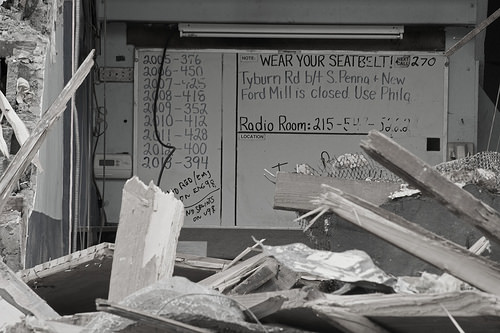 2005-376
2006-450
2007-425
2008-418
2009-352
2010-412
2011-428
2008-400
2013-394
NO RED/EMS
ON ENG 93
NO SPINNS
ON V98
NOTE:
WEAR YOUR SEATBELT! 270
Tyburn Rd b/t S. Penna + New
Ford Mill is closed Use Phila
Radio Room: 215-
LOCATION: